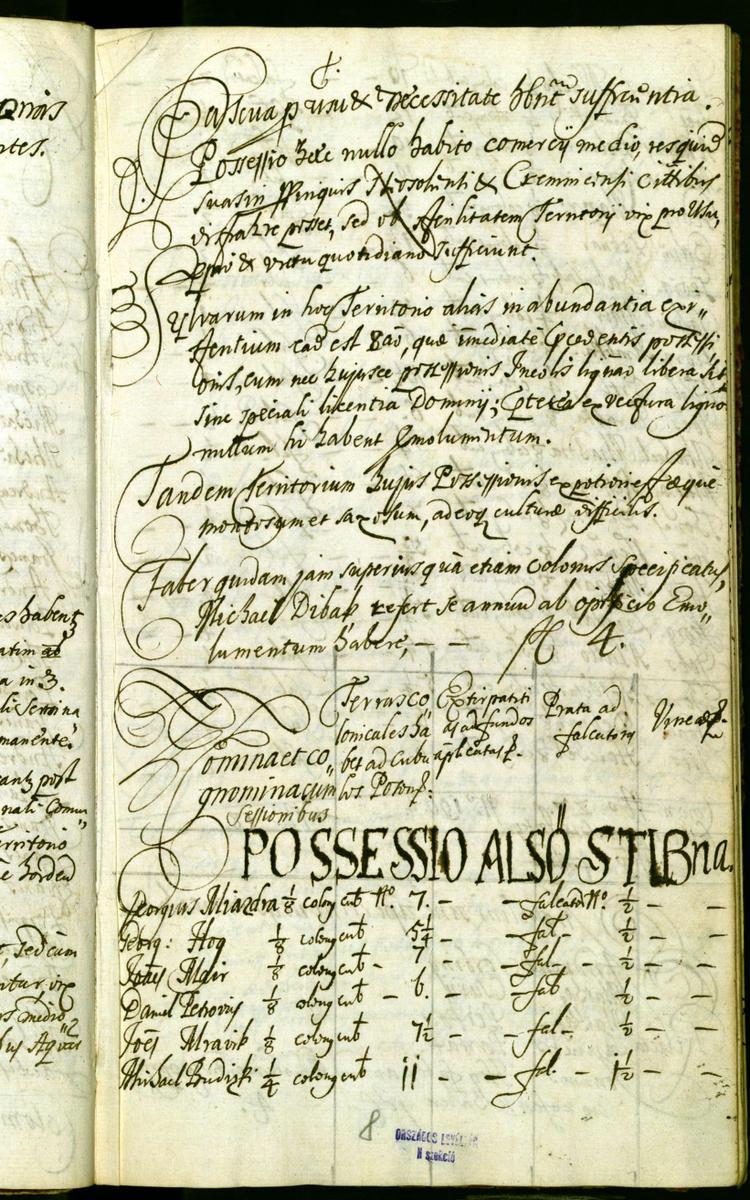 Qrnis
rtes.
Pascua p usui & necessitate hbnt sufficientia.
Possessio haec nullo habito comercij medio, res quid
suas in ppinquis Neosoliensi & Cremniciensi Cittibus
distrahere posset, sed ob sterilitatem Territorij vix pro Usu,
pprio & victu quotidiano sufficiunt.
Sylvarum in hoc Territorio alias in abundantia exi„
stentium ead est Rao, quae imediatè Pcedentis possessi„
onis, cum nec hujusce possessionis Incolis lignao libera sit
sine speciali licentia Dominij; Ptereà ex vectura ligno
nullum hi habent Emolumentum.
Tandem Territorium hujus Possessionis ex potiori Aequè
montosum et saxosum, adeoq culturae difficilis.
Faber quidam jam superius quà etiam Colonus Specificatus,
Michael Dibak refert se annuū ab opificio Emo„
lumentum habere, – – 4.
Nomina et co
gnomina cum
Sessionibus
Terras co„
lonicales ha
bet ad Cubu
los Poson:
Extirpatiti
as ad fundos
aplicatas
Prata ad
falcatores
Vineas
POSSESSIO ALSÓ STUBna.
Georgius Miazdra 1/8 colon cub No. 7. – – falcator No. 1/2 – –
Georg: Hog 1/8 colon cub 5 1/4 – – fal. – 1/2 – –
Joães Mair 1/8 colon cub – 7 – – fal. – – 1/2 – –
Daniel Petrovis 1/8 colon cub – 6. – – fal 1/2 – –
Joēs Mravik 1/8 colon cub 7 1/2 – – fal – 1/2 – –
Michael Budiski 1/4 colon cub 11 – – fal. – 1 1/2 – –
8
ORSZÁGOS LEVÉLTÁR
N szekció